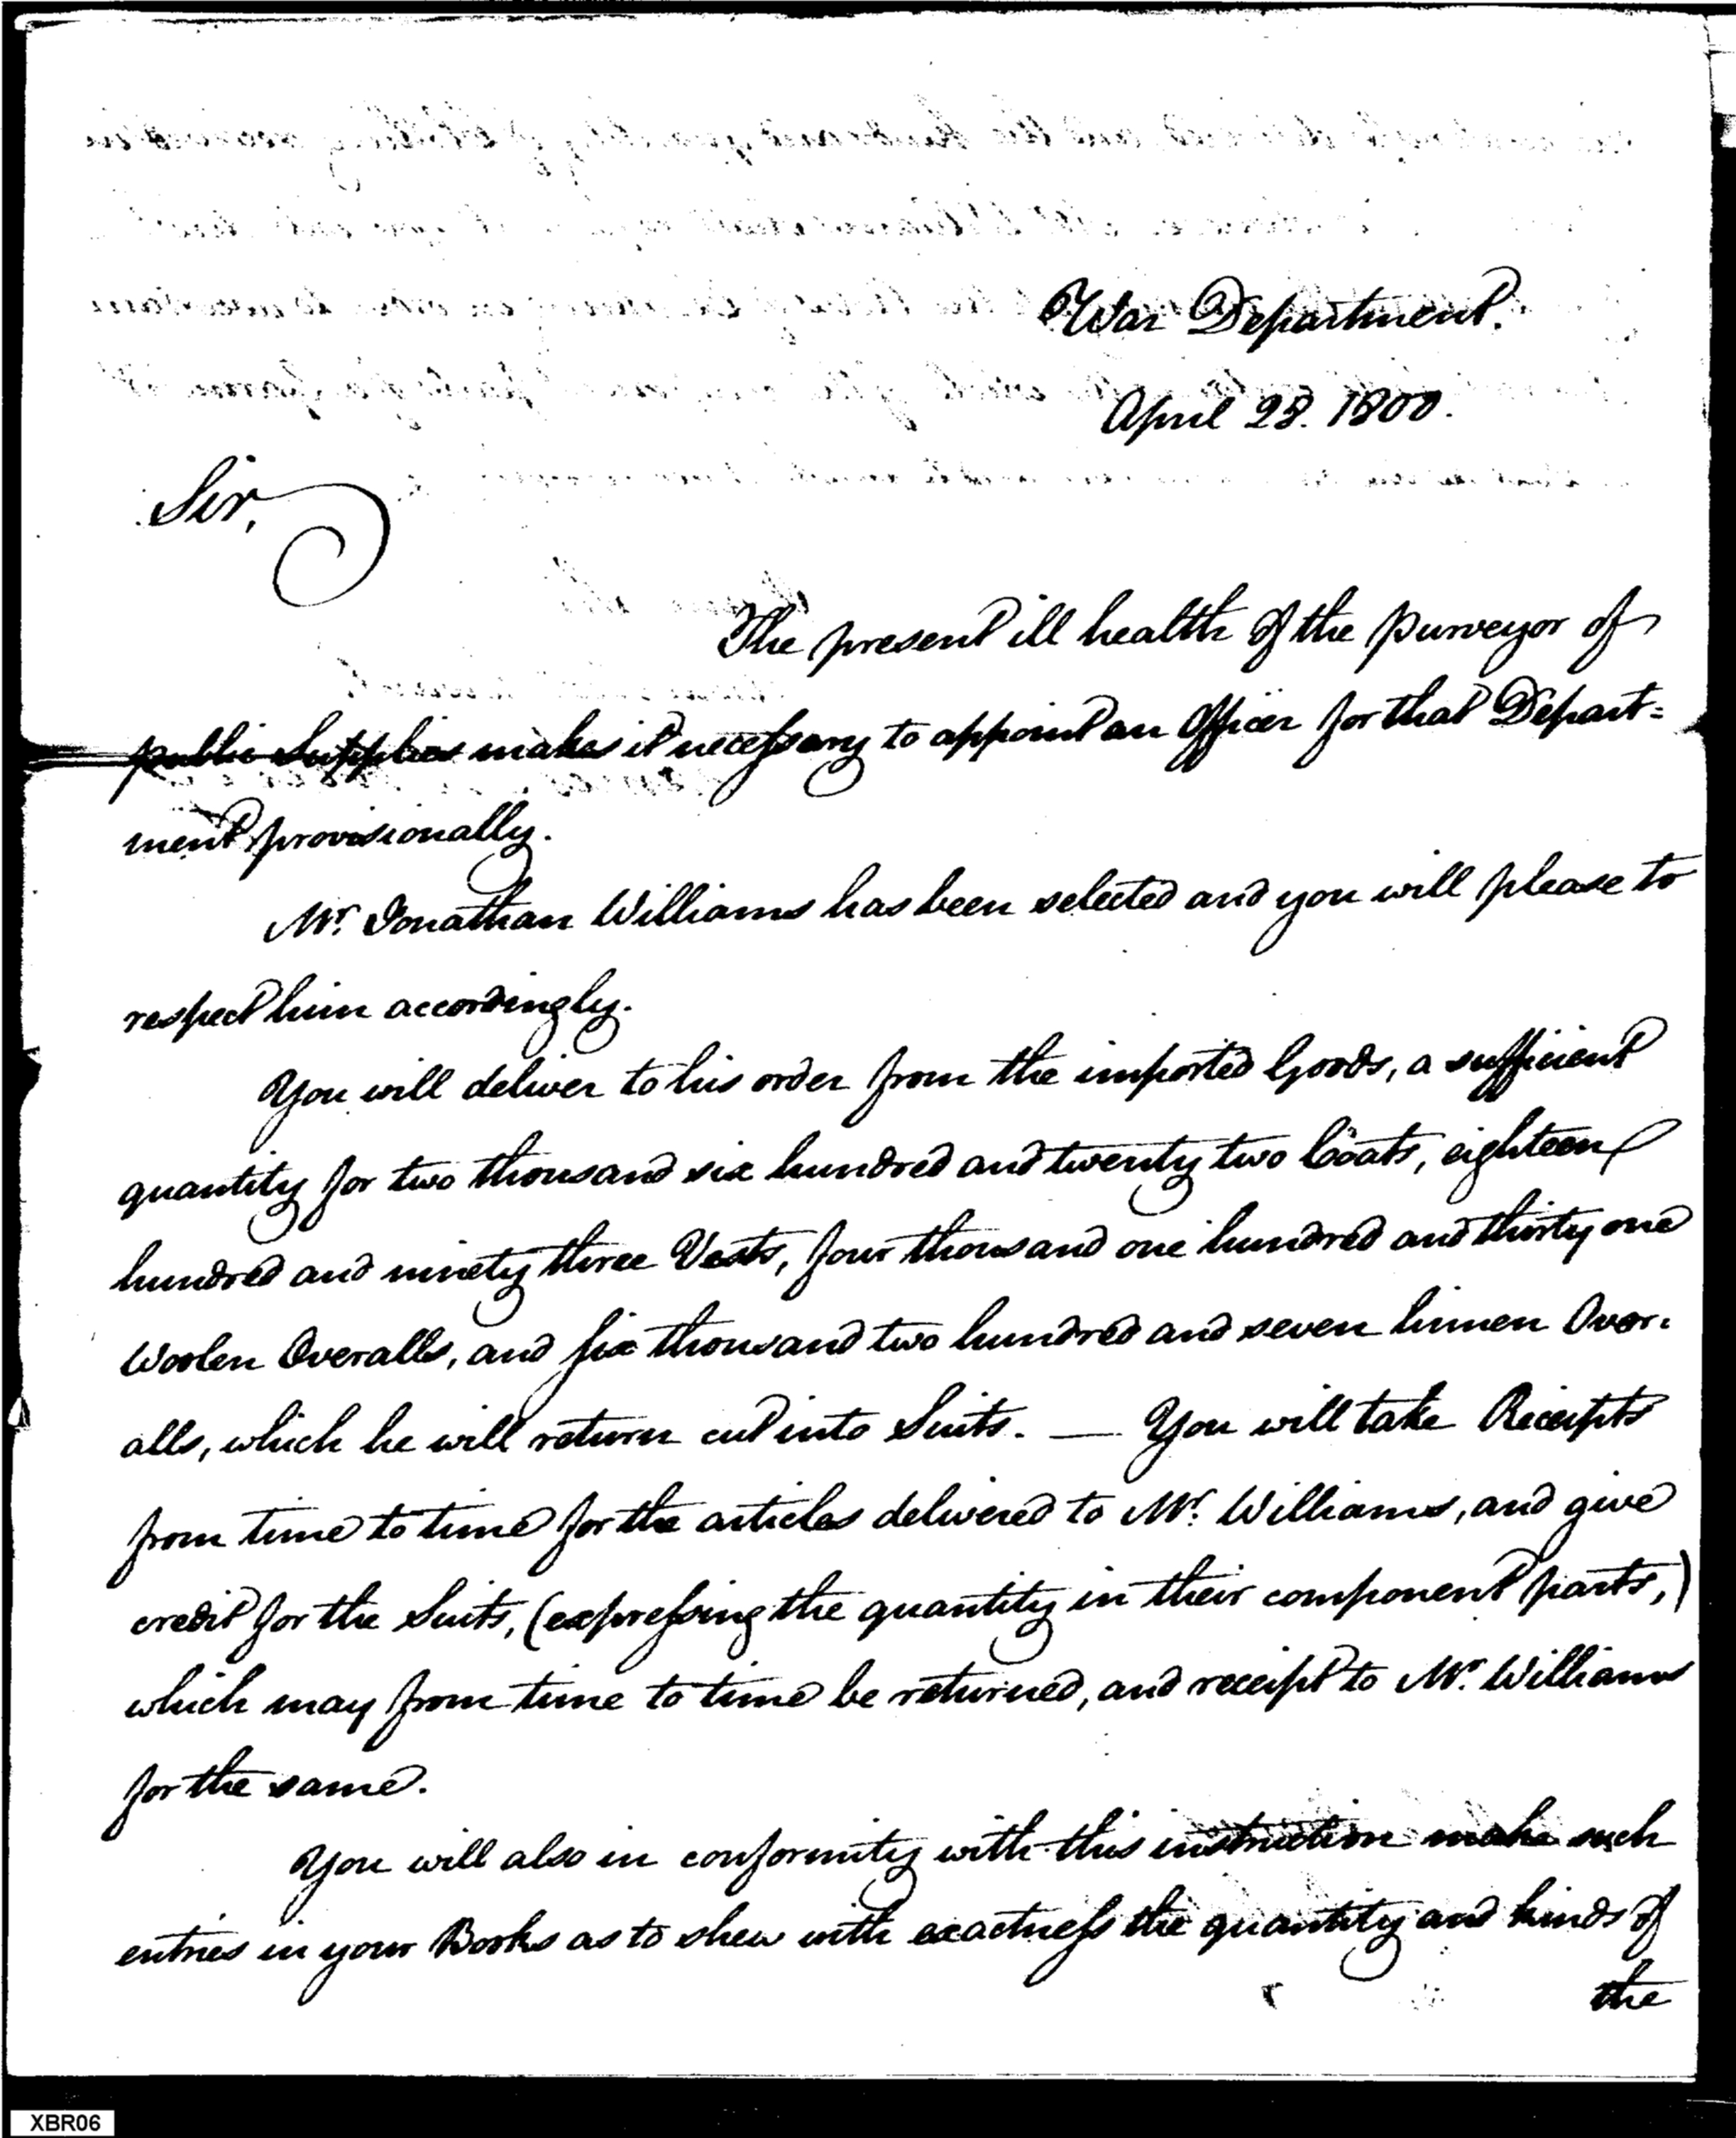 War Department.
April 28. 1800.
Sir,
The present ill health of the Purveyor of
public Supplies makes it necessary to appoint an Officer for that Depart=
ment provisionally.
Mr. Jonathan Williams has been selected and you will please to
respect him accordingly.
You will deliver to his order from the imported Goods, a sufficient
quantity for two thousand six hundred and twenty two Coats, eighteen
hundred and ninety three Vests, four thousand one hundred and thirty one
Woolen Overalls, and six thousand two hundred and seven linnen Over-
alls, which he will return cut into Suits. — You will take Receipts
from time to time for the articles delivered to Mr. Williams, and give
credit for the Suits, (expressing the quantity in their component parts,)
which may from time to time be returned, and receipt to Mr. Williams
for the same.
You will also in conformity with this instruction make such
entries in your Books as to shew with exactness the quantity and kinds of
the
XBR06